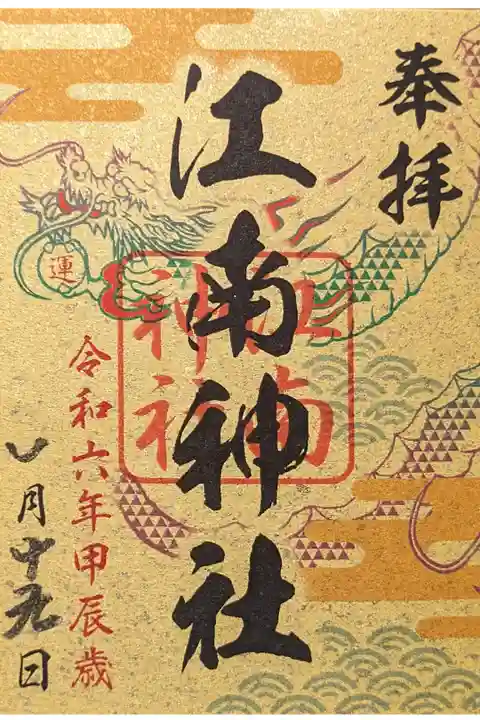 奉拝
江南神社
江南
神社
運
令和六年甲辰歳
月十九日